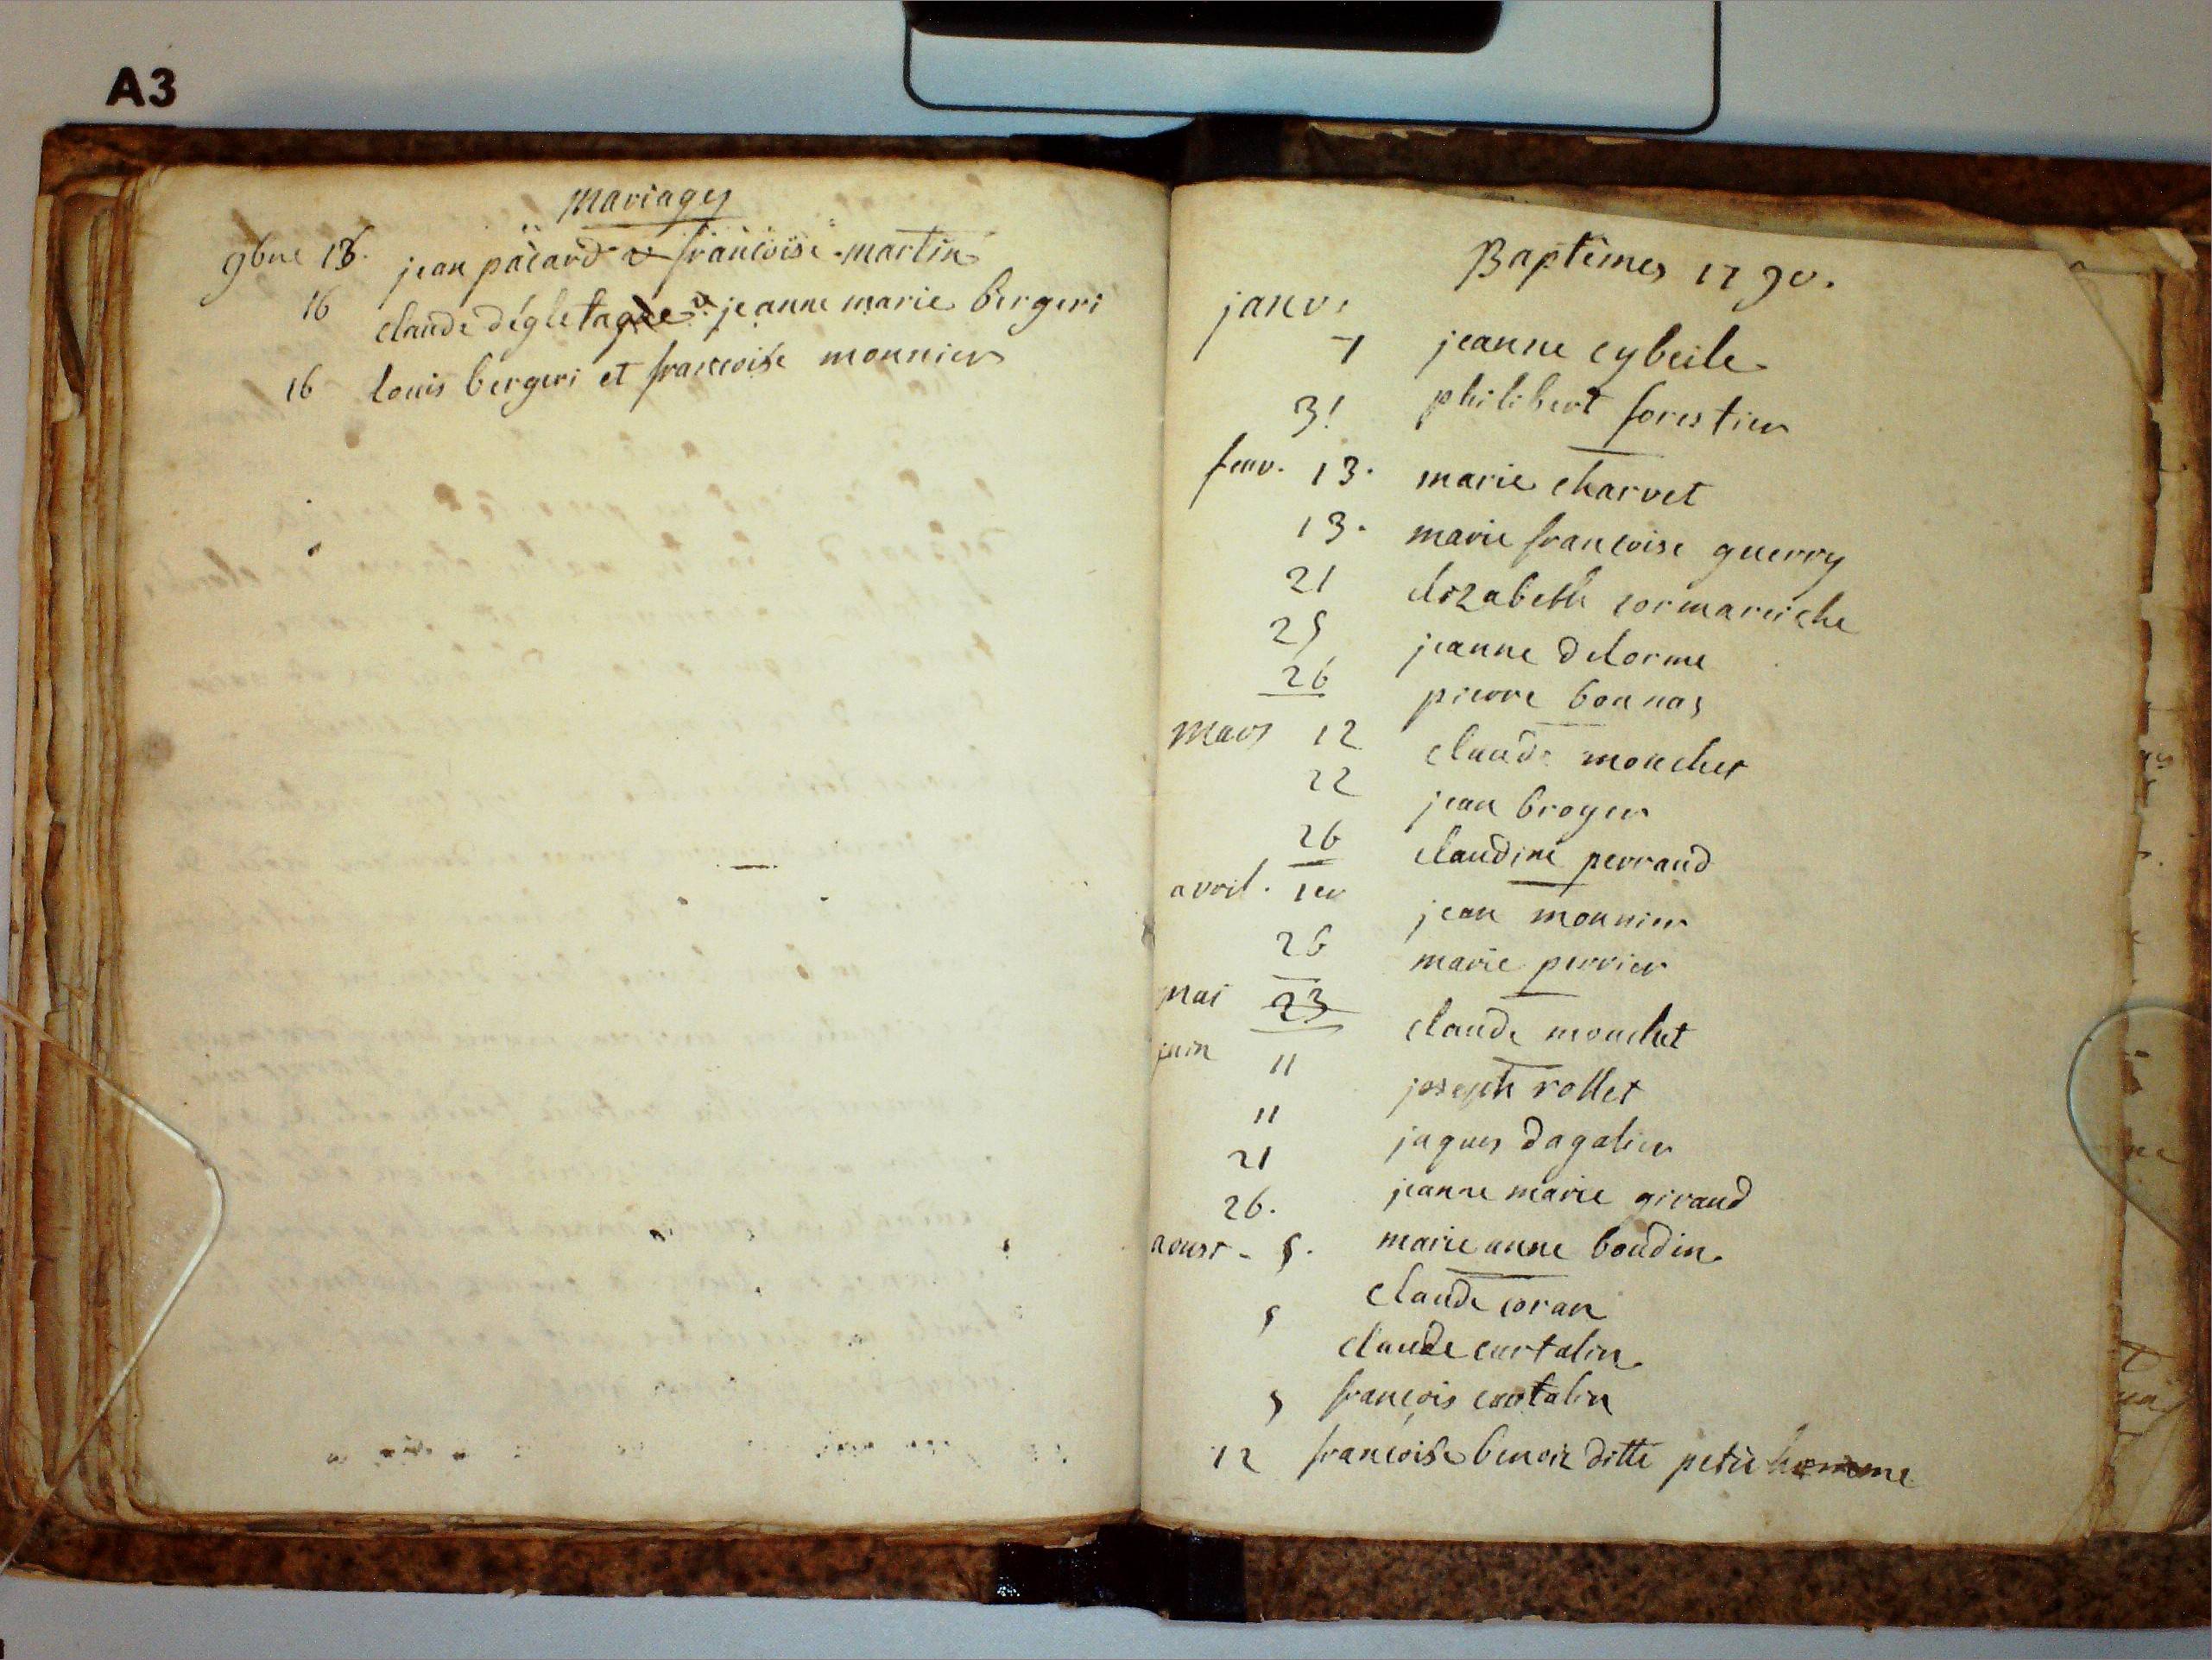 A3
Mariages
9bre 13. jean pacard et francoise martin
16 claude dégletagne et jeanne marie bergeri
16 louis bergeri et francoise monnier
Baptêmes 1790.
janv.
7 jeanne cybeile
31 philibert forestier
fevr. 13. marie charvet
13. marie francoise guerry
21 elizabeth cormareiche
25 jeanne delorme
26 pierre bonnas
Mars 12 claude monchet
22 jean broyer
26 claudine perraud
avril. 1er jean monnier
26 marie perrier
Mai 23 claude monchet
juin 11 joseph rollet
11 jaques dagalier
21 jeanne marie giraud
26. marie anne boudin
aoust - 5. claude coran
5 claude curtalin
5 françois curtalin
12 francoise benoit ditte petit homme